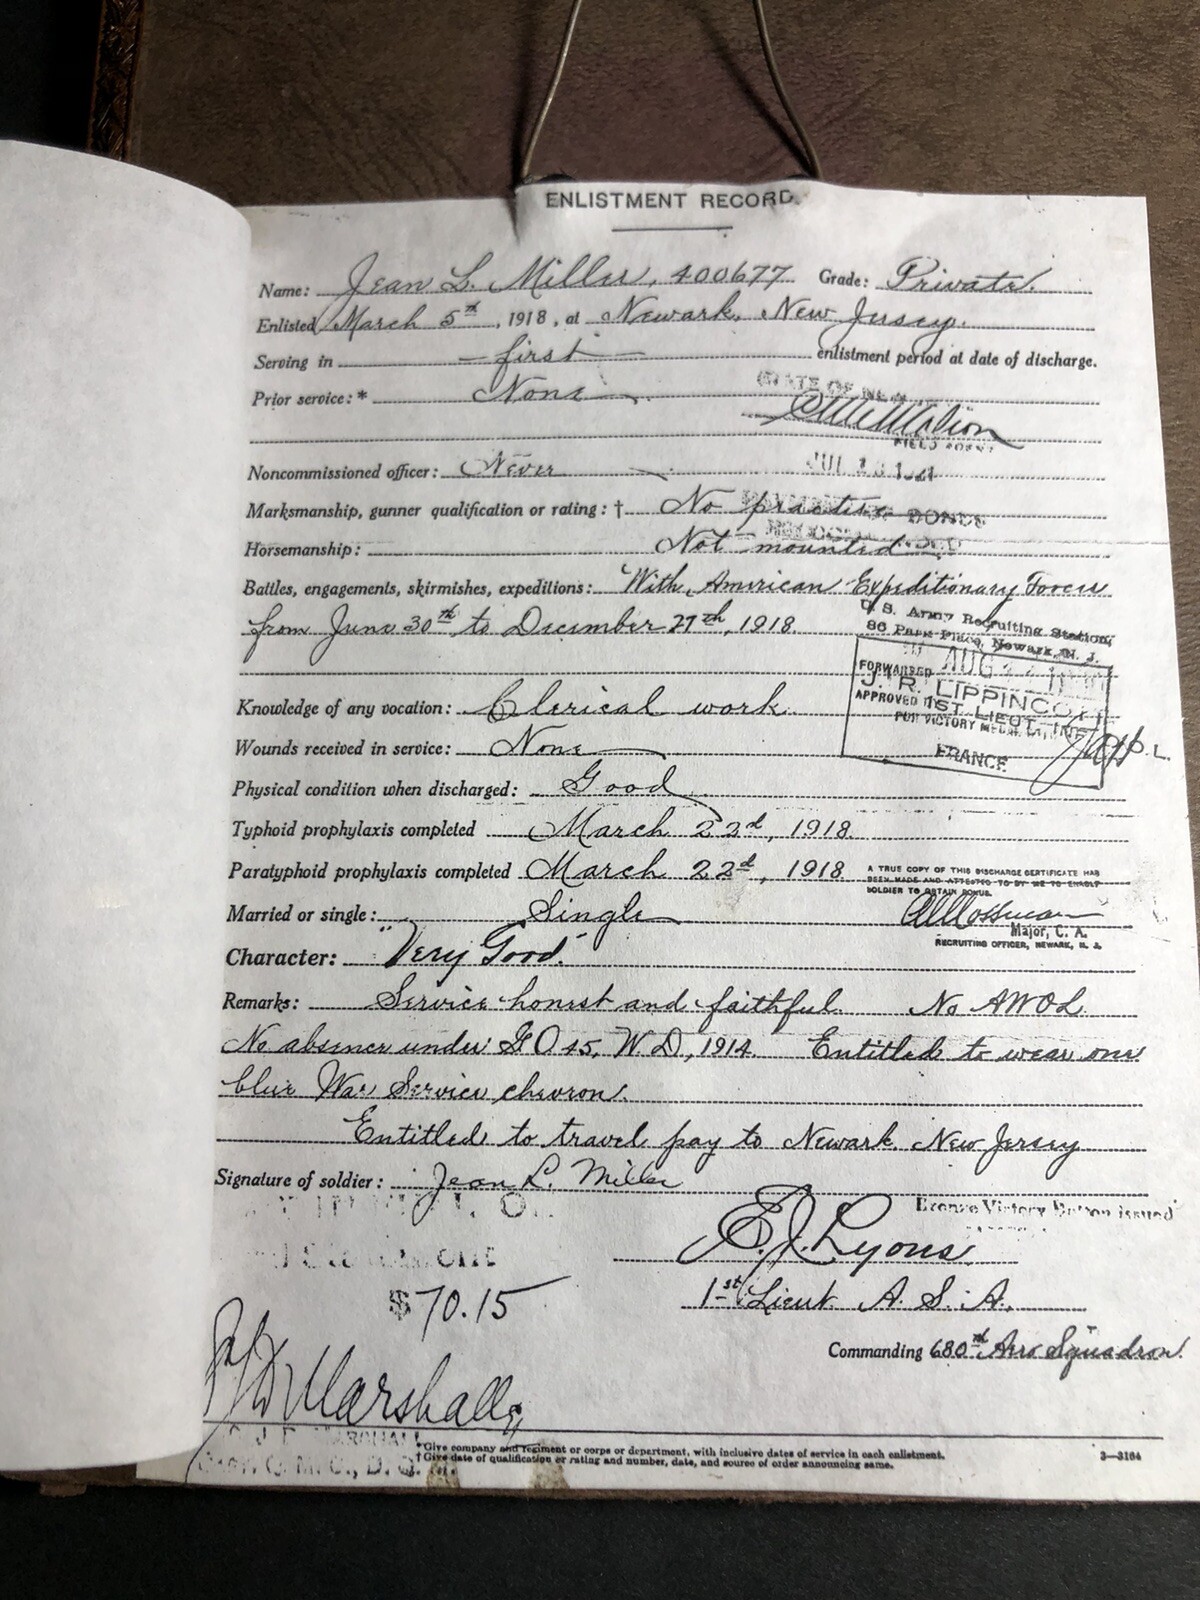 ENLISTMENT RECORD.
Name: Jean L. Miller, 400677 Grade: Private.
Enlisted March 5th, 1918, at Newark, New Jersey.
Serving in first enlistment period at date of discharge.
Prior service:* None
STATE OF NEW
FIELD AGENT
Noncommissioned officer: Never
JUL
Marksmanship, gunner qualification or rating: † No practice
BONUS
Horsemanship: Not mounted
Battles, engagements, skirmishes, expeditions: With American Expeditionary Forces
from June 30th to December 27th, 1918.
U. S. Army Recruiting Station,
86 Park Place, Newark, N. J.
AUG
FORWARDED
J. R. LIPPINCOTT
APPROVED 1ST. LIEUT. INF.
FOR VICTORY MEDAL
FRANCE
Knowledge of any vocation: Clerical work
Wounds received in service: None
Physical condition when discharged: Good
Typhoid prophylaxis completed March 22d, 1918.
Paratyphoid prophylaxis completed March 22d, 1918
A TRUE COPY OF THIS DISCHARGE CERTIFICATE HAS
BEEN MADE AND ATTESTED TO BY ME TO ENABLE
SOLDIER TO OBTAIN BONUS.
Married or single: Single
Major, C. A.
RECRUITING OFFICER, NEWARK, N. J.
Character: "Very Good."
Remarks: Service honest and faithful. No AWOL
No absence under G O 45, W D, 1914. Entitled to wear one
blue War Service chevron.
Entitled to travel pay to Newark, New Jersey
Signature of soldier: Jean L. Miller
Bronze Victory Button issued
E. J. Lyons
$70.15
1st Lieut. A. S. A.
Commanding 680th Aero Squadron.
Marshall
*Give company and regiment or corps or department, with inclusive dates of service in each enlistment.
†Give date of qualification or rating and number, date, and source of order announcing same.
3—3164